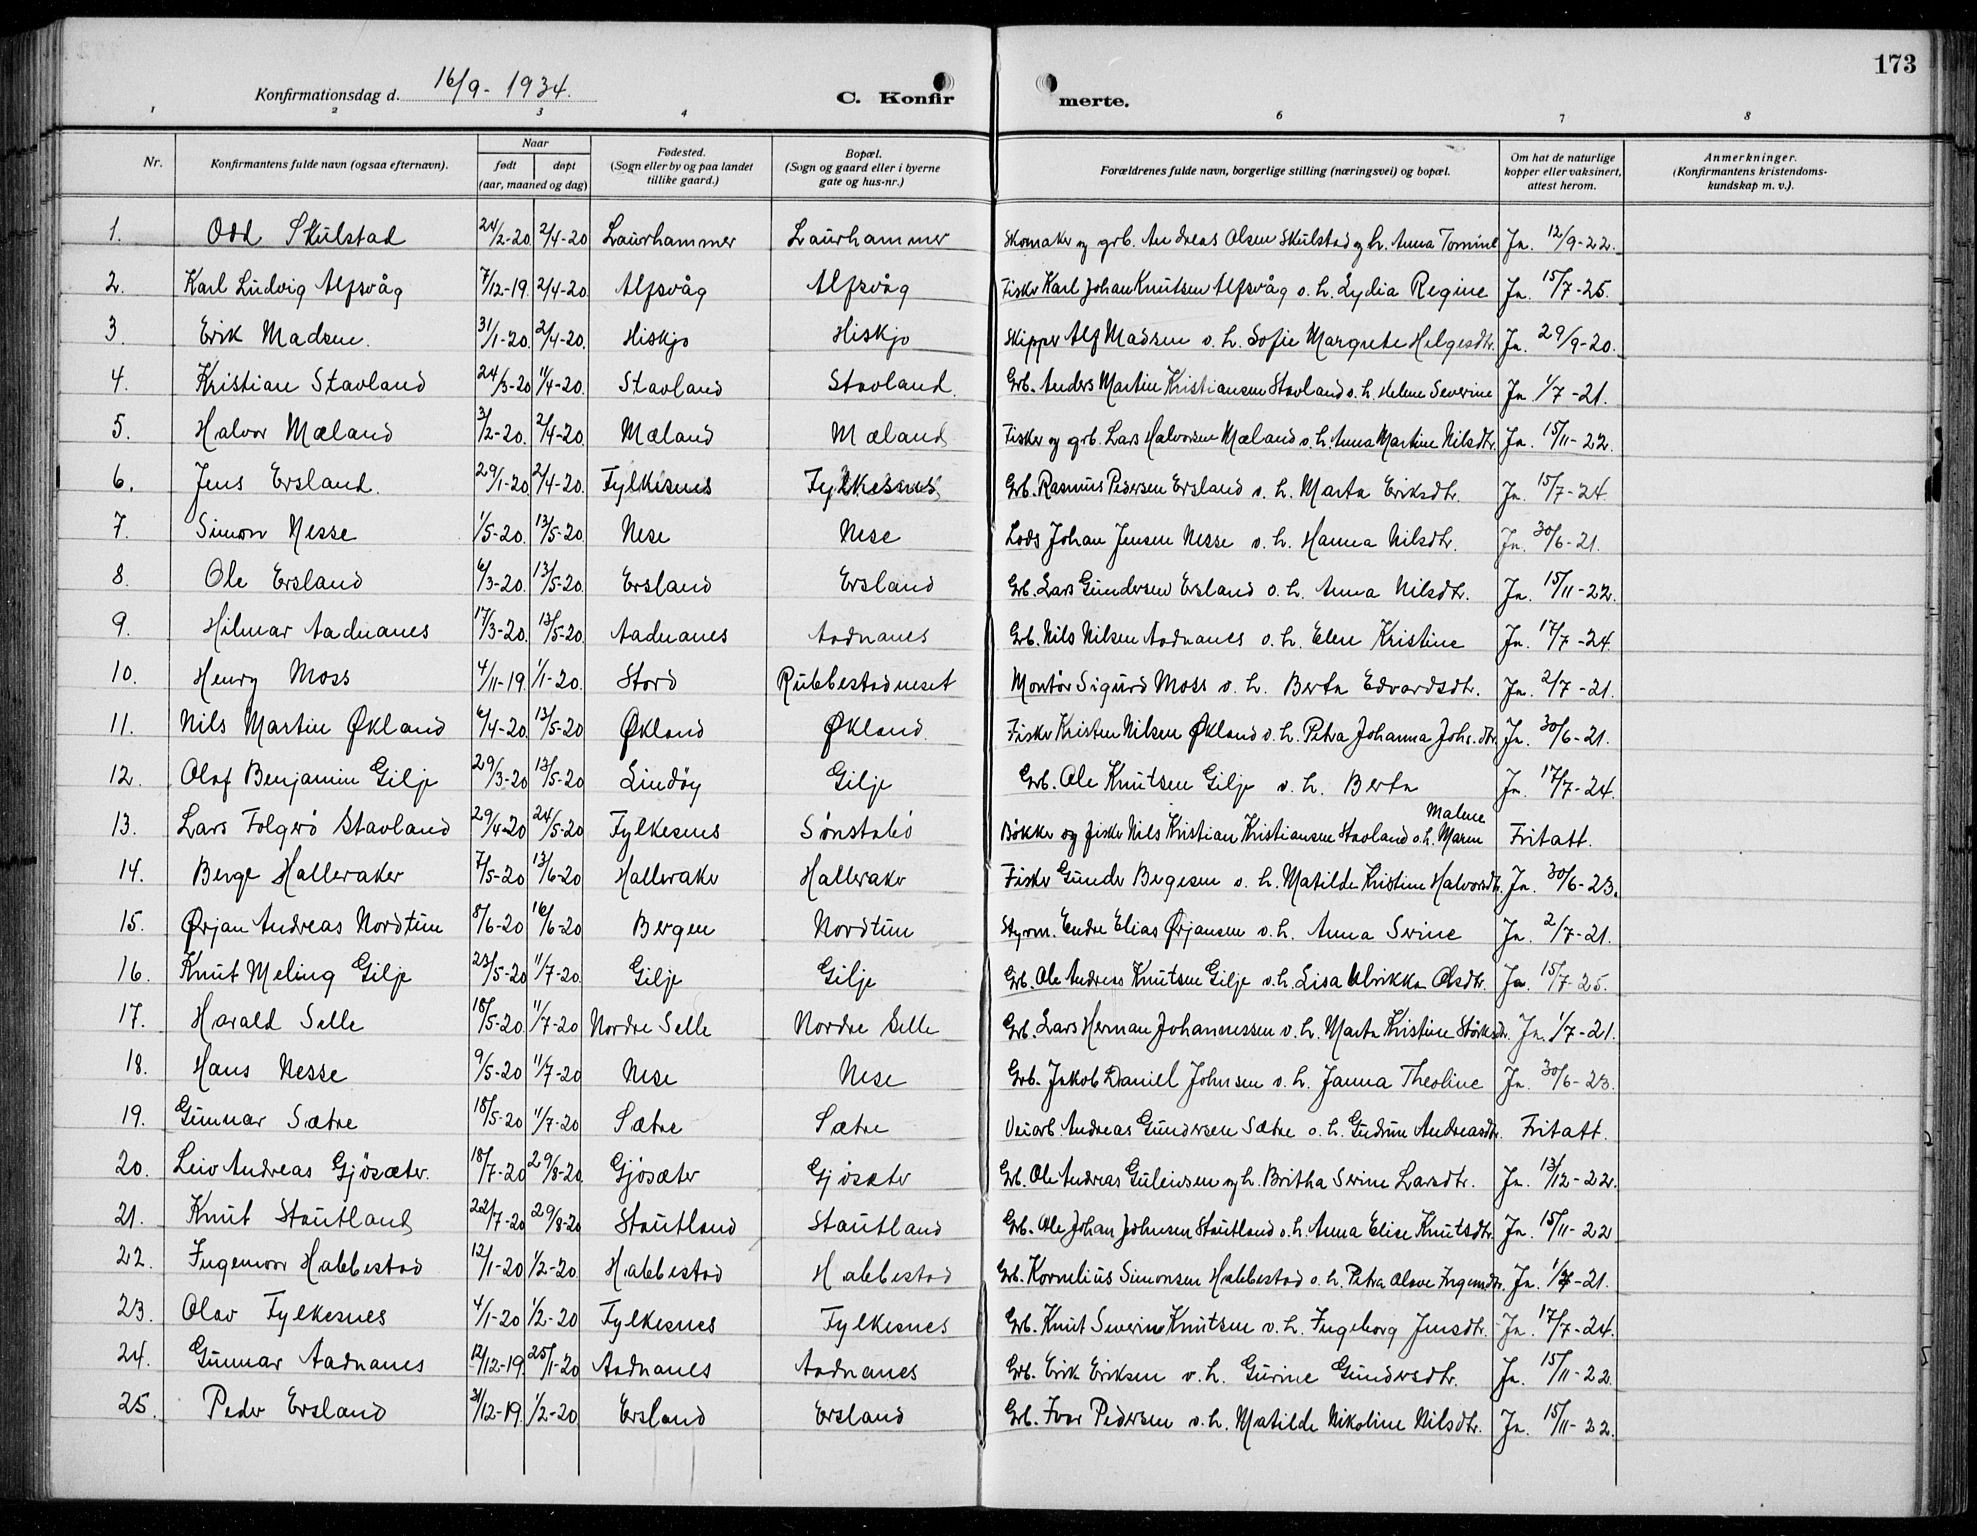 173
Konfirmationsdag d. 16/9 - 1934.
C. Konfirmerte.
1 2 3 4 6 7 8
Nr. Konfirmantens fulde navn (ogsaa efternavn). Naar født døpt (aar, maaned og dag) Fødested. (Sogn eller by og paa landet tillike gaard.) Bopæl. (Sogn og gaard eller i byerne gate og hus-nr.) Forældrenes fulde navn, borgerlige stilling (næringsvei) og bopæl. Om hat de naturlige kopper eller vaksinert, attest herom. Anmerkninger. (Konfirmantens kristendomskundskap m. v.).
1. Odd Skulstad 24/2-20. 2/4-20 Laurhammer Laurhammer Skomaker og grb. Andreas Olsen Skulstad og h. Anna Tomine Ja. 12/9-22.
2. Karl Ludvig Alfsvåg 7/12-19. 2/4-20. Alfsvåg Alfsvåg Fisker Karl Johan Knutsen Alfsvåg o. h. Lydia Regine Ja. 15/7-25.
3. Erik Madsen. 31/1-20. 2/4-20. Hiskjo Hiskjo Skipper Alf Madsen o. h. Sofie Margrete Helgesdtr. Ja. 29/9-20.
4. Kristian Stavland 24/3-20 4/4-20. Stavland Stavland. Grb. Anders Martin Kristiansen Stavland o. h. Helene Severine Ja. 1/7-21.
5. Halvor Mæland 3/2-20. 2/4-20. Mæland Mæland Fisker og grb. Lars Halvorsen Mæland o. h. Anna Martine Nilsdtr. Ja. 15/11-22.
6. Jens Ersland. 29/1-20 2/4-20. Fylkesnes Fylkesnes Grb. Rasmus Pedersen Ersland o. h. Marta Eriksdtr. Ja. 15/7-24.
7. Simon Nesse 1/5-20. 13/5-20. Nese Nese Lods Johan Jensen Nesse o. h. Hanna Nilsdtr. Ja. 30/6-21.
8. Ole Ersland 6/3-20. 13/5-20. Ersland Ersland Grb. Lars Gundersen Ersland o. h. Anna Nilsdtr. Ja. 15/11-22.
9. Hilmar Aadnanes 17/3-20. 13/5-20. Aadnanes Aadnanes Grb. Nils Nilsen Aadnanes o. h. Elen Kristine Ja. 17/7-24.
10. Henry Moss 4/11-19. 1/1-20. Stord Rubbestadneset Montør Sigurd Moss o. h. Berta Edvardsdtr. Ja. 2/7-21.
11. Nils Martin Økland 6/4-20. 13/5-20 Økland Økland. Fisker Kristen Nilsen Økland o. h. Petra Johanna Johs.dtr. Ja. 30/6-21.
12. Olaf Benjamin Gilje 29/3-20 13/5-20 Lindøy Gilje Grb. Ole Knutsen Gilje o. h. Berta Ja. 17/7-24.
Malene
13. Lars Folgerø Stavland 29/4-20 24/5-20 Fylkesnes Sønstabø Bøkker og fisker Nils Kristian Kristiansen Stavland o. h. Maren Fritatt.
14. Berge Halleraker 7/5-20 13/6-20 Halleraker Halleraker Fisker Gunder Bergesen o. h. Matilde Kristine Halvorsdtr. Ja. 30/6-23.
15. Ørjan Andreas Nordtun 8/6-20 16/6-20 Bergen Nordtun Styrm. Endre Elias Ørjansen o. h. Anna Serine Ja. 2/7-21.
16. Knut Meling Gilje 23/5-20 11/7-20. Gilje Gilje Grb. Ole Andreas Knutsen Gilje o. h. Lisa Ulrikka Olsdtr. Ja. 15/7-25.
17. Harald Selle 18/5-20. 11/7-20 Nordre Selle Nordre Selle Grb. Lars Herman Johannessen o. h. Marta Kristine Størksdtr. Ja. 1/7-21.
18. Hans Nesse 9/5-20 11/7-20 Nese Nese Grb. Jakob Daniel Johnsen o. h. Janna Theoline Ja. 30/6-23.
19. Gunnar Sætre 18/5-20 11/7-20 Sætre Sætre Veiarb. Andreas Gundersen Sætre o. h. Gudrun Andreasdtr. Fritatt.
20. Leiv Andreas Gjøsæter. 18/7-20 29/8-20 Gjøsæter Gjøsæter Grb. Ole Andreas Guleinsen og h. Britha Serine Larsdtr. Ja. 13/12-22.
21. Knut Stautland 22/7-20 29/8-20 Stautland Stautland Grb. Ole Johan Johnsen Stautland o. h. Anna Elise Knutsdtr. Ja. 15/11-22
22. Ingemor Habbestad 12/1-20 1/2-20 Habbestad Habbestad Grb. Kornelius Simonsen Habbestad o. h. Petra Olave Ingem.dtr. Ja. 1/7-21.
23. Olav Fylkesnes 4/1-20 1/2-20 Fylkesnes Fylkesnes Grb. Knut Severin Knutsen o. h. Ingeborg Jensdtr. Ja. 17/7-24.
24. Gunnar Aadnanes 12/12-19. 25/1-20 Aadnanes Aadnanes Grb. Erik Eriksen o. h. Gurine Gundersdtr. Ja. 15/11-22.
25. Peder Ersland 31/12-19. 1/2-20. Ersland Ersland Grb. Ivar Pedersen o. h. Matilde Nikoline Nilsdtr. Ja. 15/11-22.